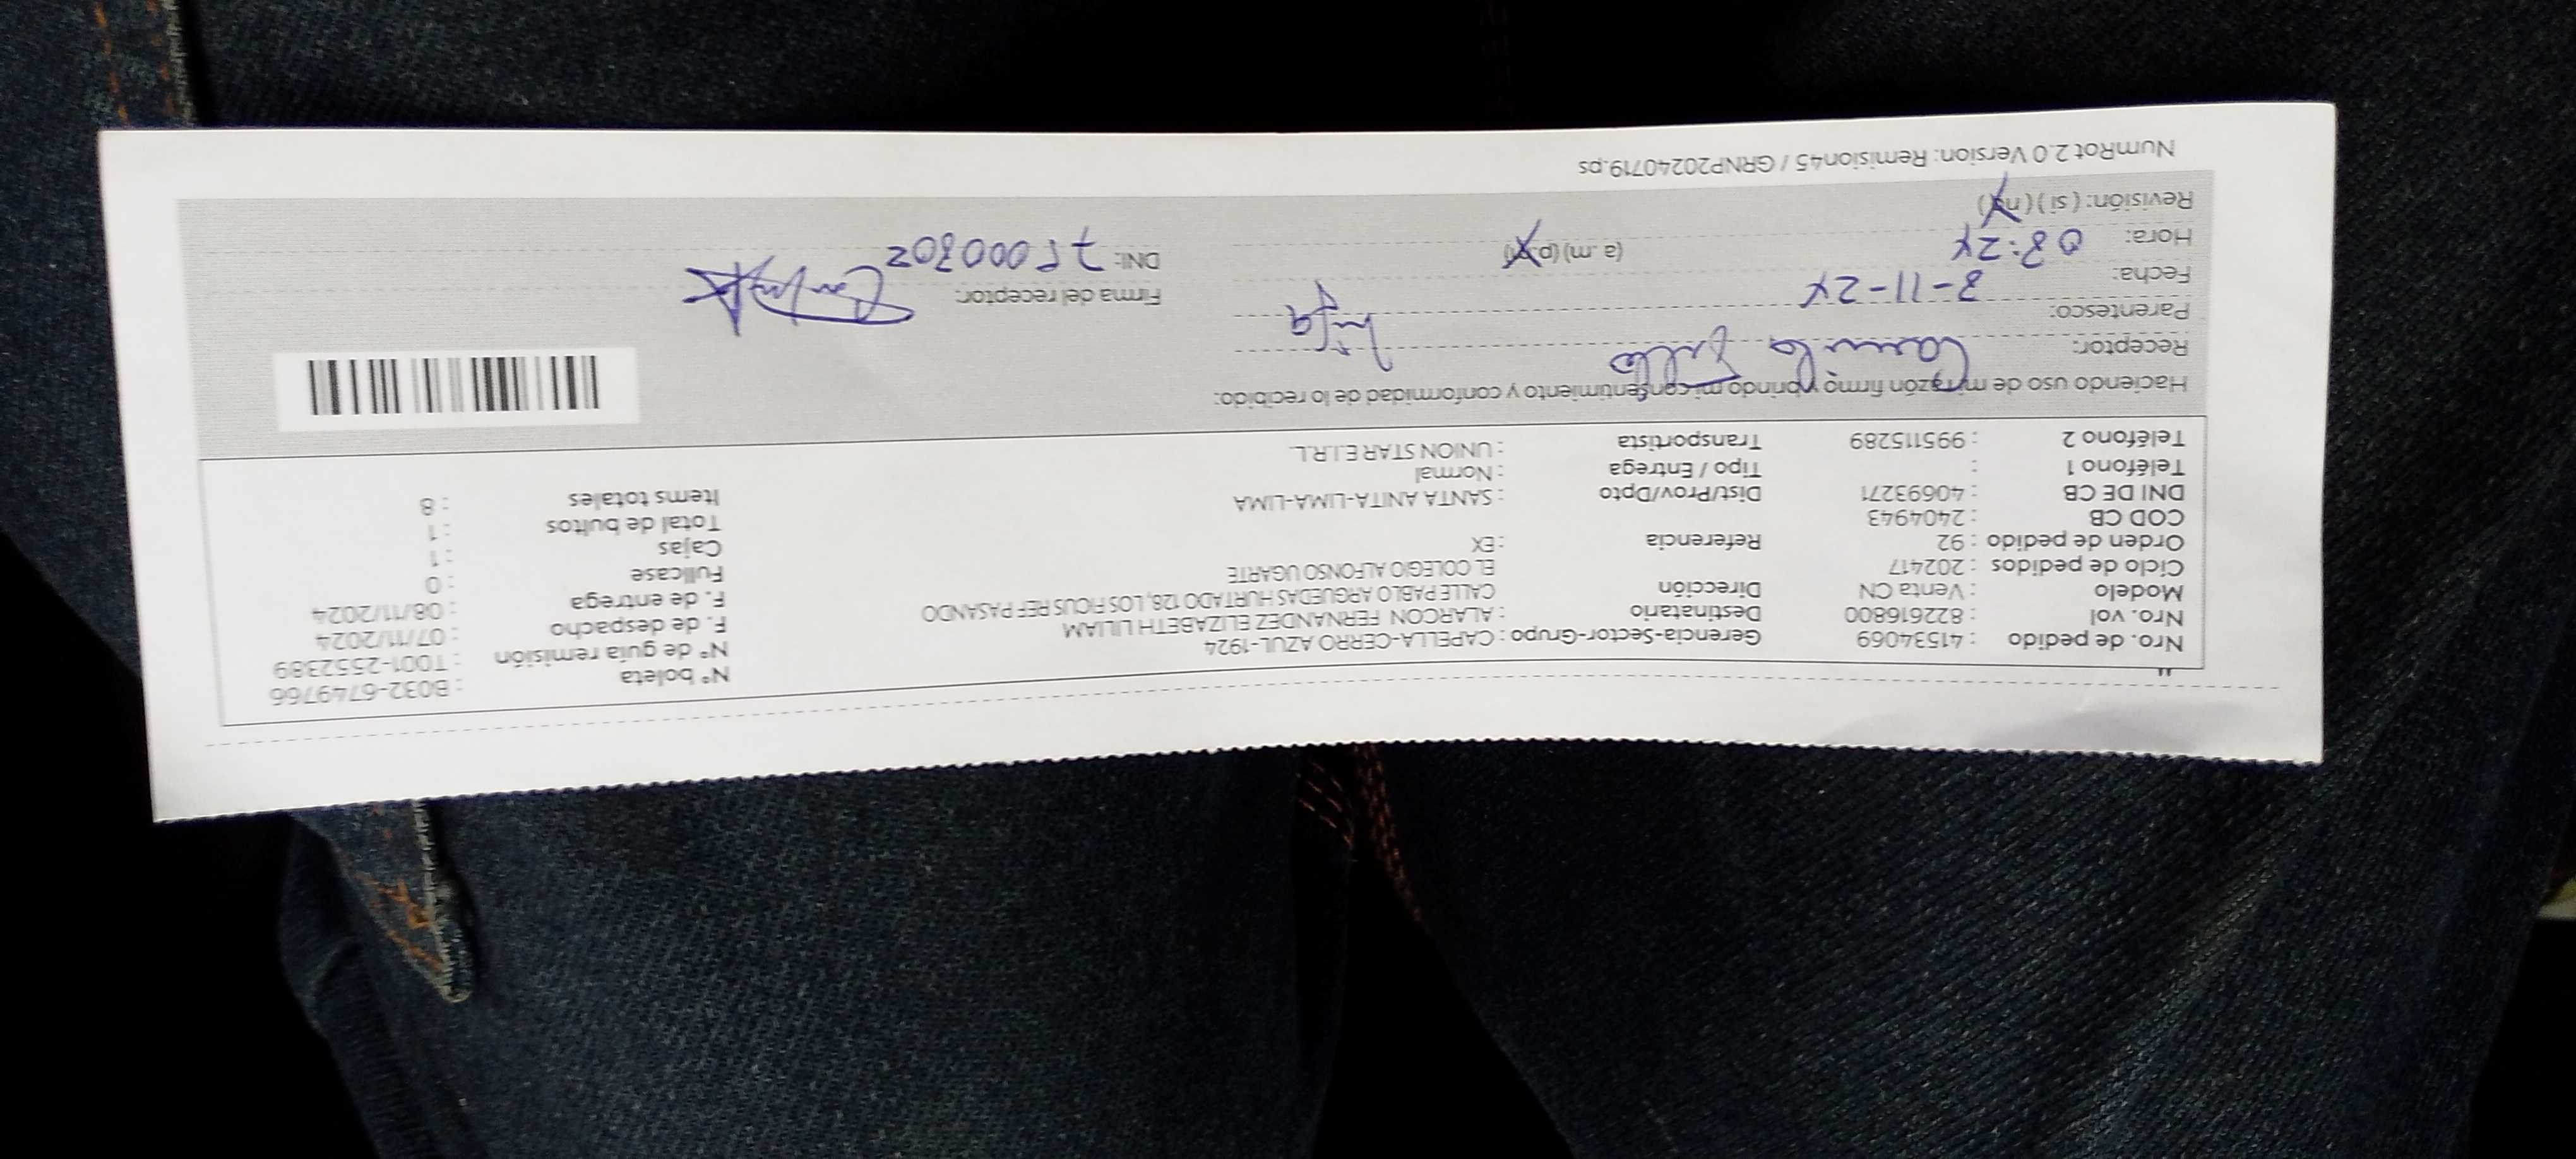 Nro. de pedido : 41534069 Gerencia-Sector-Grupo : CAPELLA-CERRO AZUL-1924 N° boleta : B032-6749766
Nro. vol : 822616800 Destinatario : ALARCON FERNANDEZ ELIZABETH LILIAM N° de guía remisión : T001-2552389
Modelo : Venta CN Dirección CALLE PABLO ARGUEDAS HURTADO 128, LOS FICUS REF PASANDO F. de despacho : 07/11/2024
Ciclo de pedidos : 202417 EL COLEGIO ALFONSO UGARTE F. de entrega : 08/11/2024
Orden de pedido : 92 Referencia : EX Fullcase : 0
COD CB : 2404943 Cajas : 1
DNI DE CB : 40693271 Dist/Prov/Dpto : SANTA ANITA-LIMA-LIMA Total de bultos : 1
Teléfono 1 : Tipo / Entrega : Normal Items totales : 8
Teléfono 2 : 995115289 Transportista : UNION STAR E.I.R.L.
Haciendo uso de mi razón firmo y brindo mi consentimiento y conformidad de lo recibido:
Receptor: Camila
Parentesco: hija
Fecha: 8-11-24 Firma del receptor:
Hora: 03:24 (a .m) (p.m) DNI: 75000302
Revisión: (si) (no)
NumRot 2.0 Version: Remision45 / GRNP20240719.ps